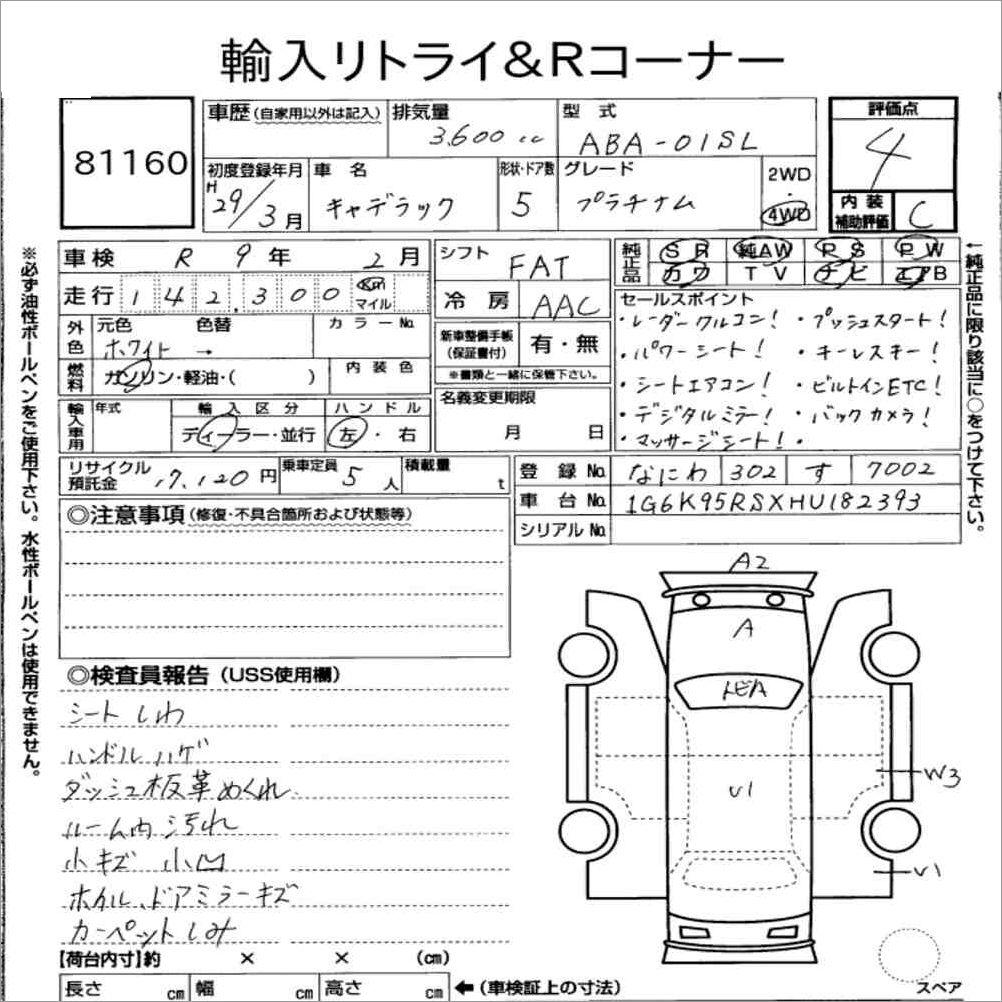 輸入リトライ&Rコーナー
81160
車歴(自家用以外は記入)
排気量 3,600 cc
型式 ABA-01SL
評価点 4
初度登録年月 H 29/3月
車名 キャデラック
形状・ドア数 5
グレード プラチナム
2WD・4WD
内装補助評価 C
車検 R 9年 2月
シフト FAT
純正品 SR 純AW PS PW
カワ TV ナビ エアB
走行 142,300 km マイル
冷房 AAC
セールスポイント
・レーダークルコン! ・プッシュスタート!
・パワーシート! ・キーレスキー!
・シートエアコン! ・ビルトインETC!
・デジタルミラー! ・バックカメラ!
・マッサージシート! ・
外色 元色 色替 カラーNo.
ホワイト →
新車整備手帳(保証書付) 有・無
※書類と一緒に保管下さい。
燃料 ガソリン・軽油・( ) 内装色
名義変更期限
月 日
輸入車用 年式 輸入区分 ハンドル
ディーラー・並行 左・右
リサイクル預託金 17,120円
乗車定員 5人
積載量 t
登録No. なにわ 302 す 7002
車台No. 1G6K95RSXHU182393
シリアルNo.
◎注意事項(修復・不具合箇所および状態等)
◎検査員報告(USS使用欄)
シートしわ
ハンドルハゲ
ダッシュ板革めくれ
ルーム内汚れ
小キズ 小凹
ホイル、ドアミラーキズ
カーペットしみ
A2
A
トビA
U1
W3
U1
スペア
【荷台内寸】約 × × (cm)
長さ cm 幅 cm 高さ cm ←(車検証上の寸法)
※必ず油性ボールペンをご使用下さい。水性ボールペンは使用できません。
←純正品に限り該当に○をつけて下さい。